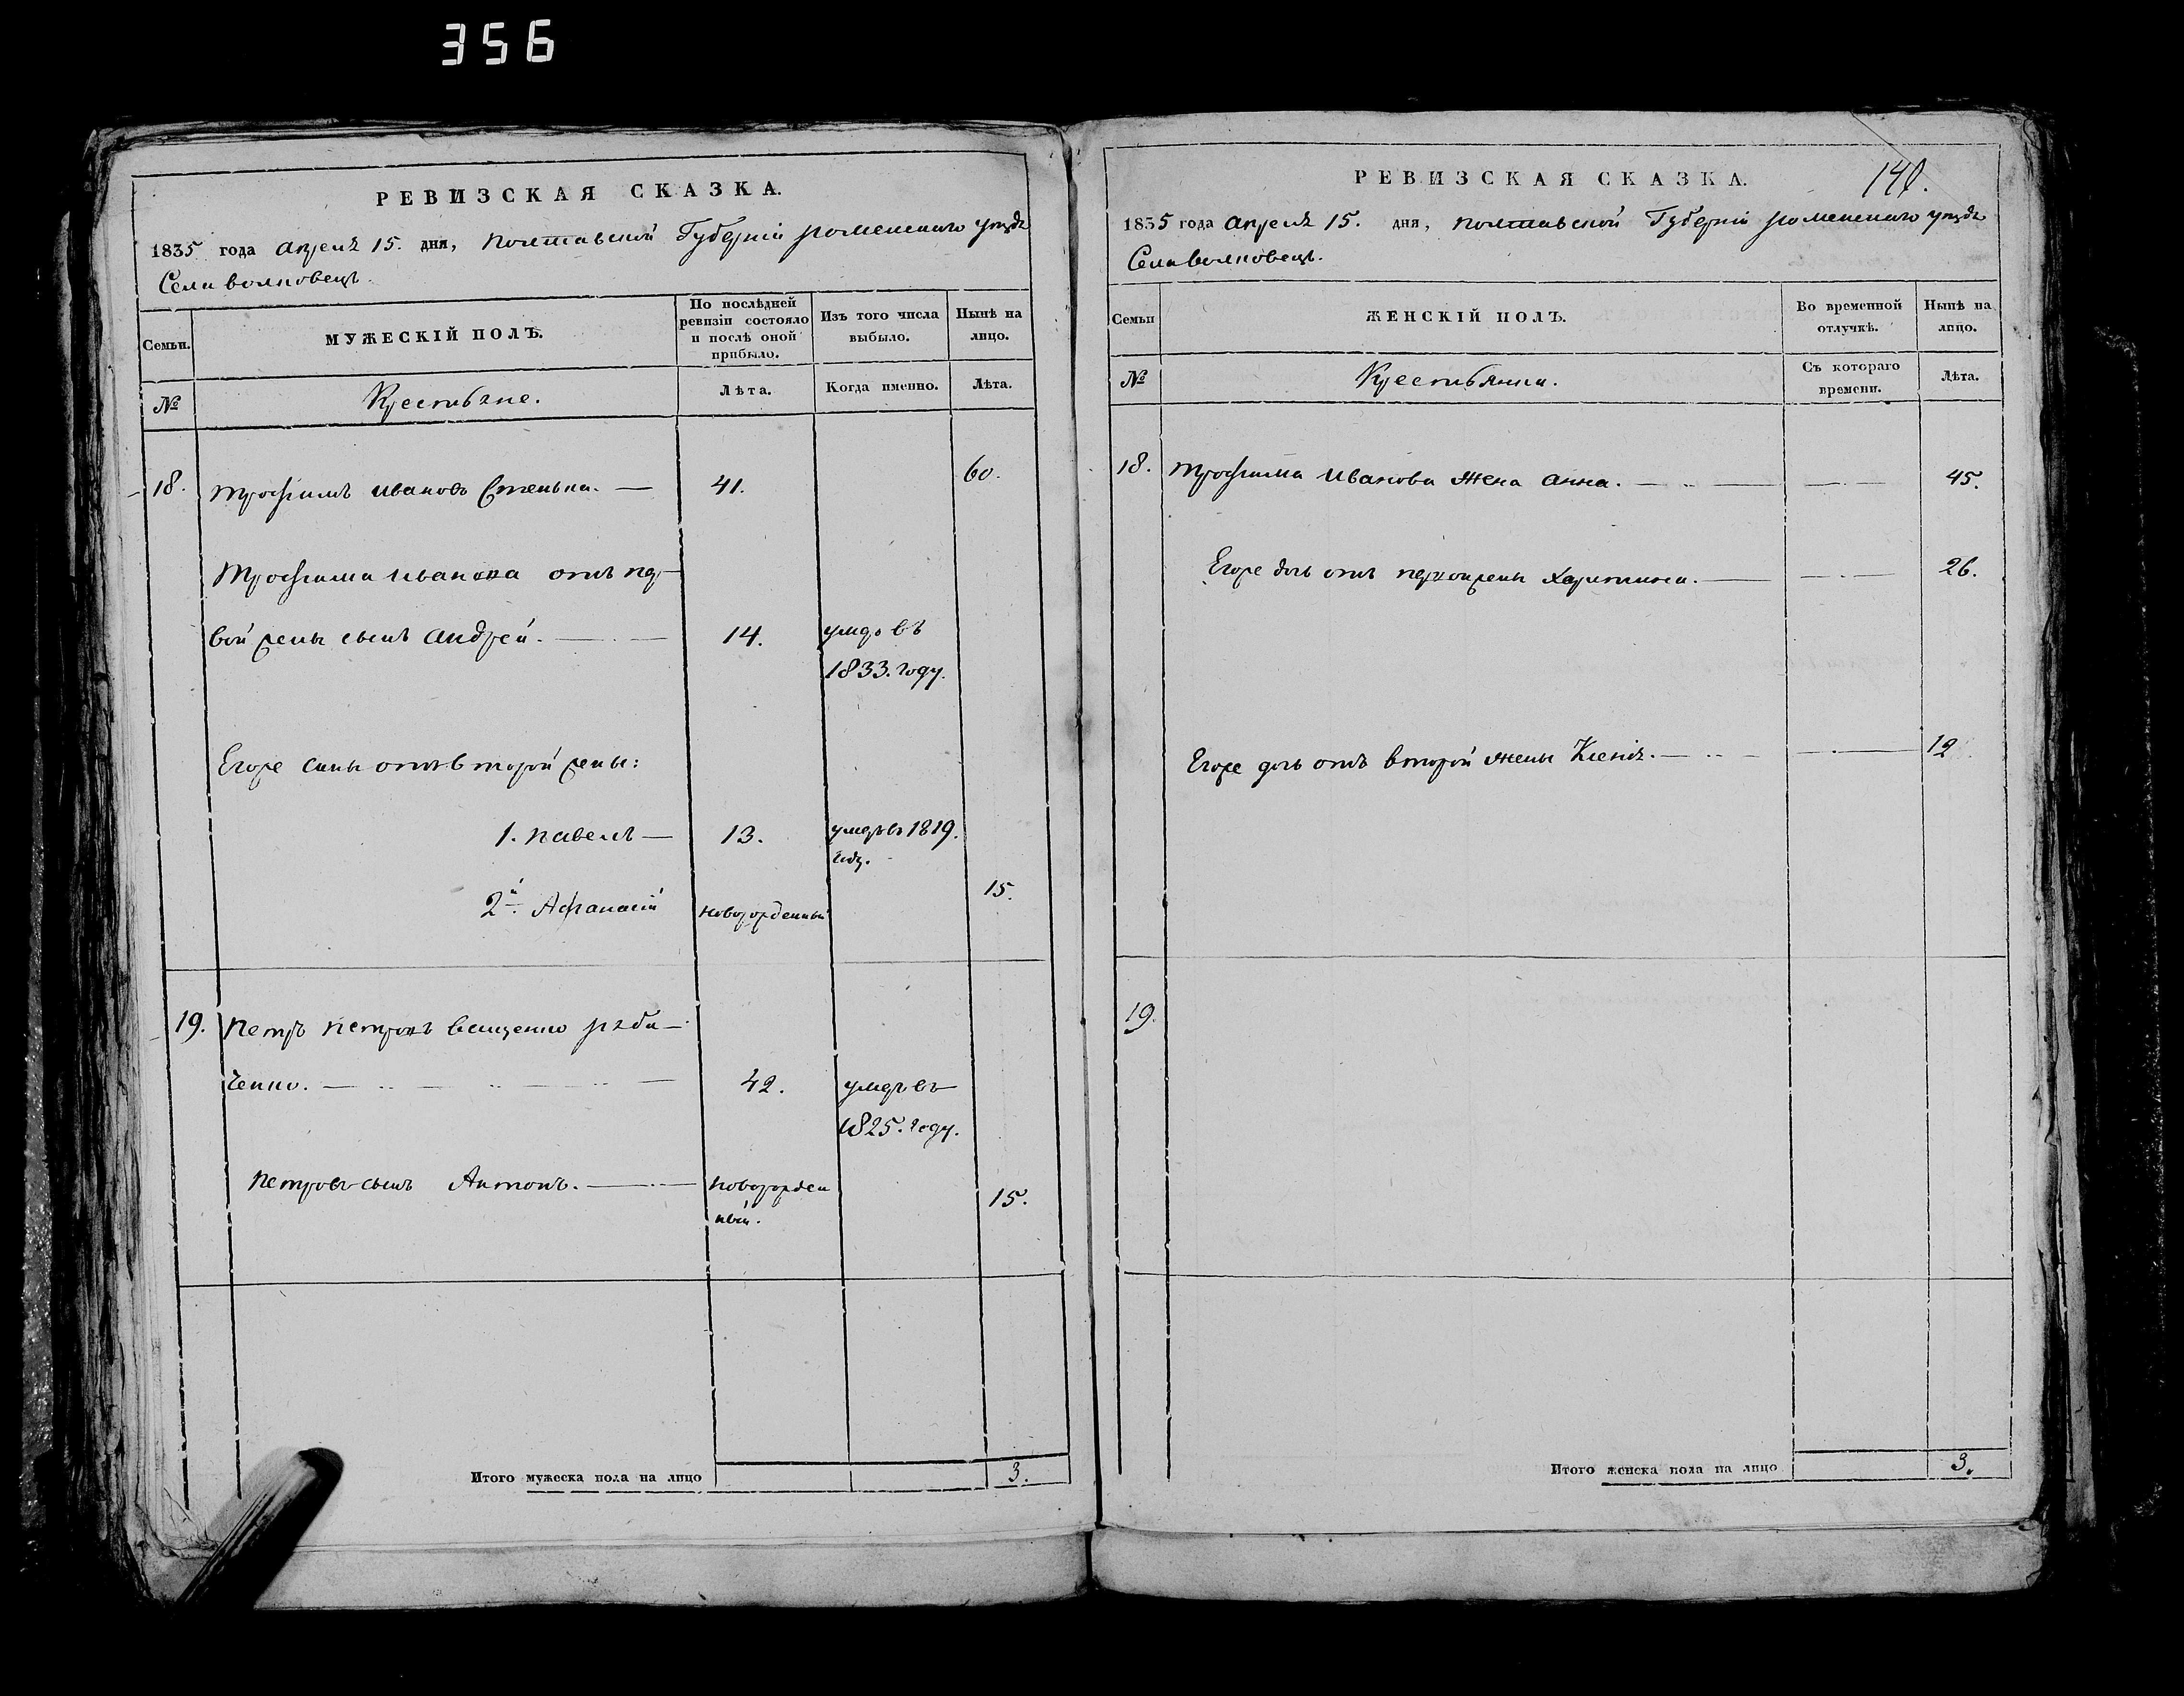 356
РЕВИЗСКАЯ СКАЗКА.
1835 года Апреля 15. дня, Полтавской Губерніи роменскаго уезда
Села волковецъ.
Семьи.
МУЖЕСКІЙ ПОЛЪ.
По послѣдней ревизіи состояло и послѣ оной прибыло.
Изъ того числа выбыло.
Нынѣ на лицо.
№
Крестьяне.
Лѣта.
Когда именно.
Лѣта.
18. Трофимъ Ивановъ Стенька. 41. 60.
Трофима Иванова отъ пер-
вой жены сынъ Андрей. 14. умре въ
1833. году.
Егоже сины отъ второй жены:
1. Павелъ 13. умре въ 1819.
году.
2й. Афанасій новорожденный 15.
19. Петръ Петровъ
ченко. 42. умре въ
1825. году.
Петровъ сынъ Антонъ. новорожден
ный. 15.
Итого мужеска пола на лицо 3.
140.
РЕВИЗСКАЯ СКАЗКА.
1835 года Апреля 15. дня, Полтавской Губерніи роменскаго уезда
Села волковецъ.
Семьи
ЖЕНСКІЙ ПОЛЪ.
Во временной отлучкѣ.
Нынѣ на лицо.
№
Крестьянки.
Съ котораго времени.
Лѣта.
18. Трофима Иванова жена Анна. 45.
Егоже дочь отъ первой жены Харитина. 26.
Егоже дочь отъ второй жены Ксенія. 12
19.
Итого женска пола на лицо 3.